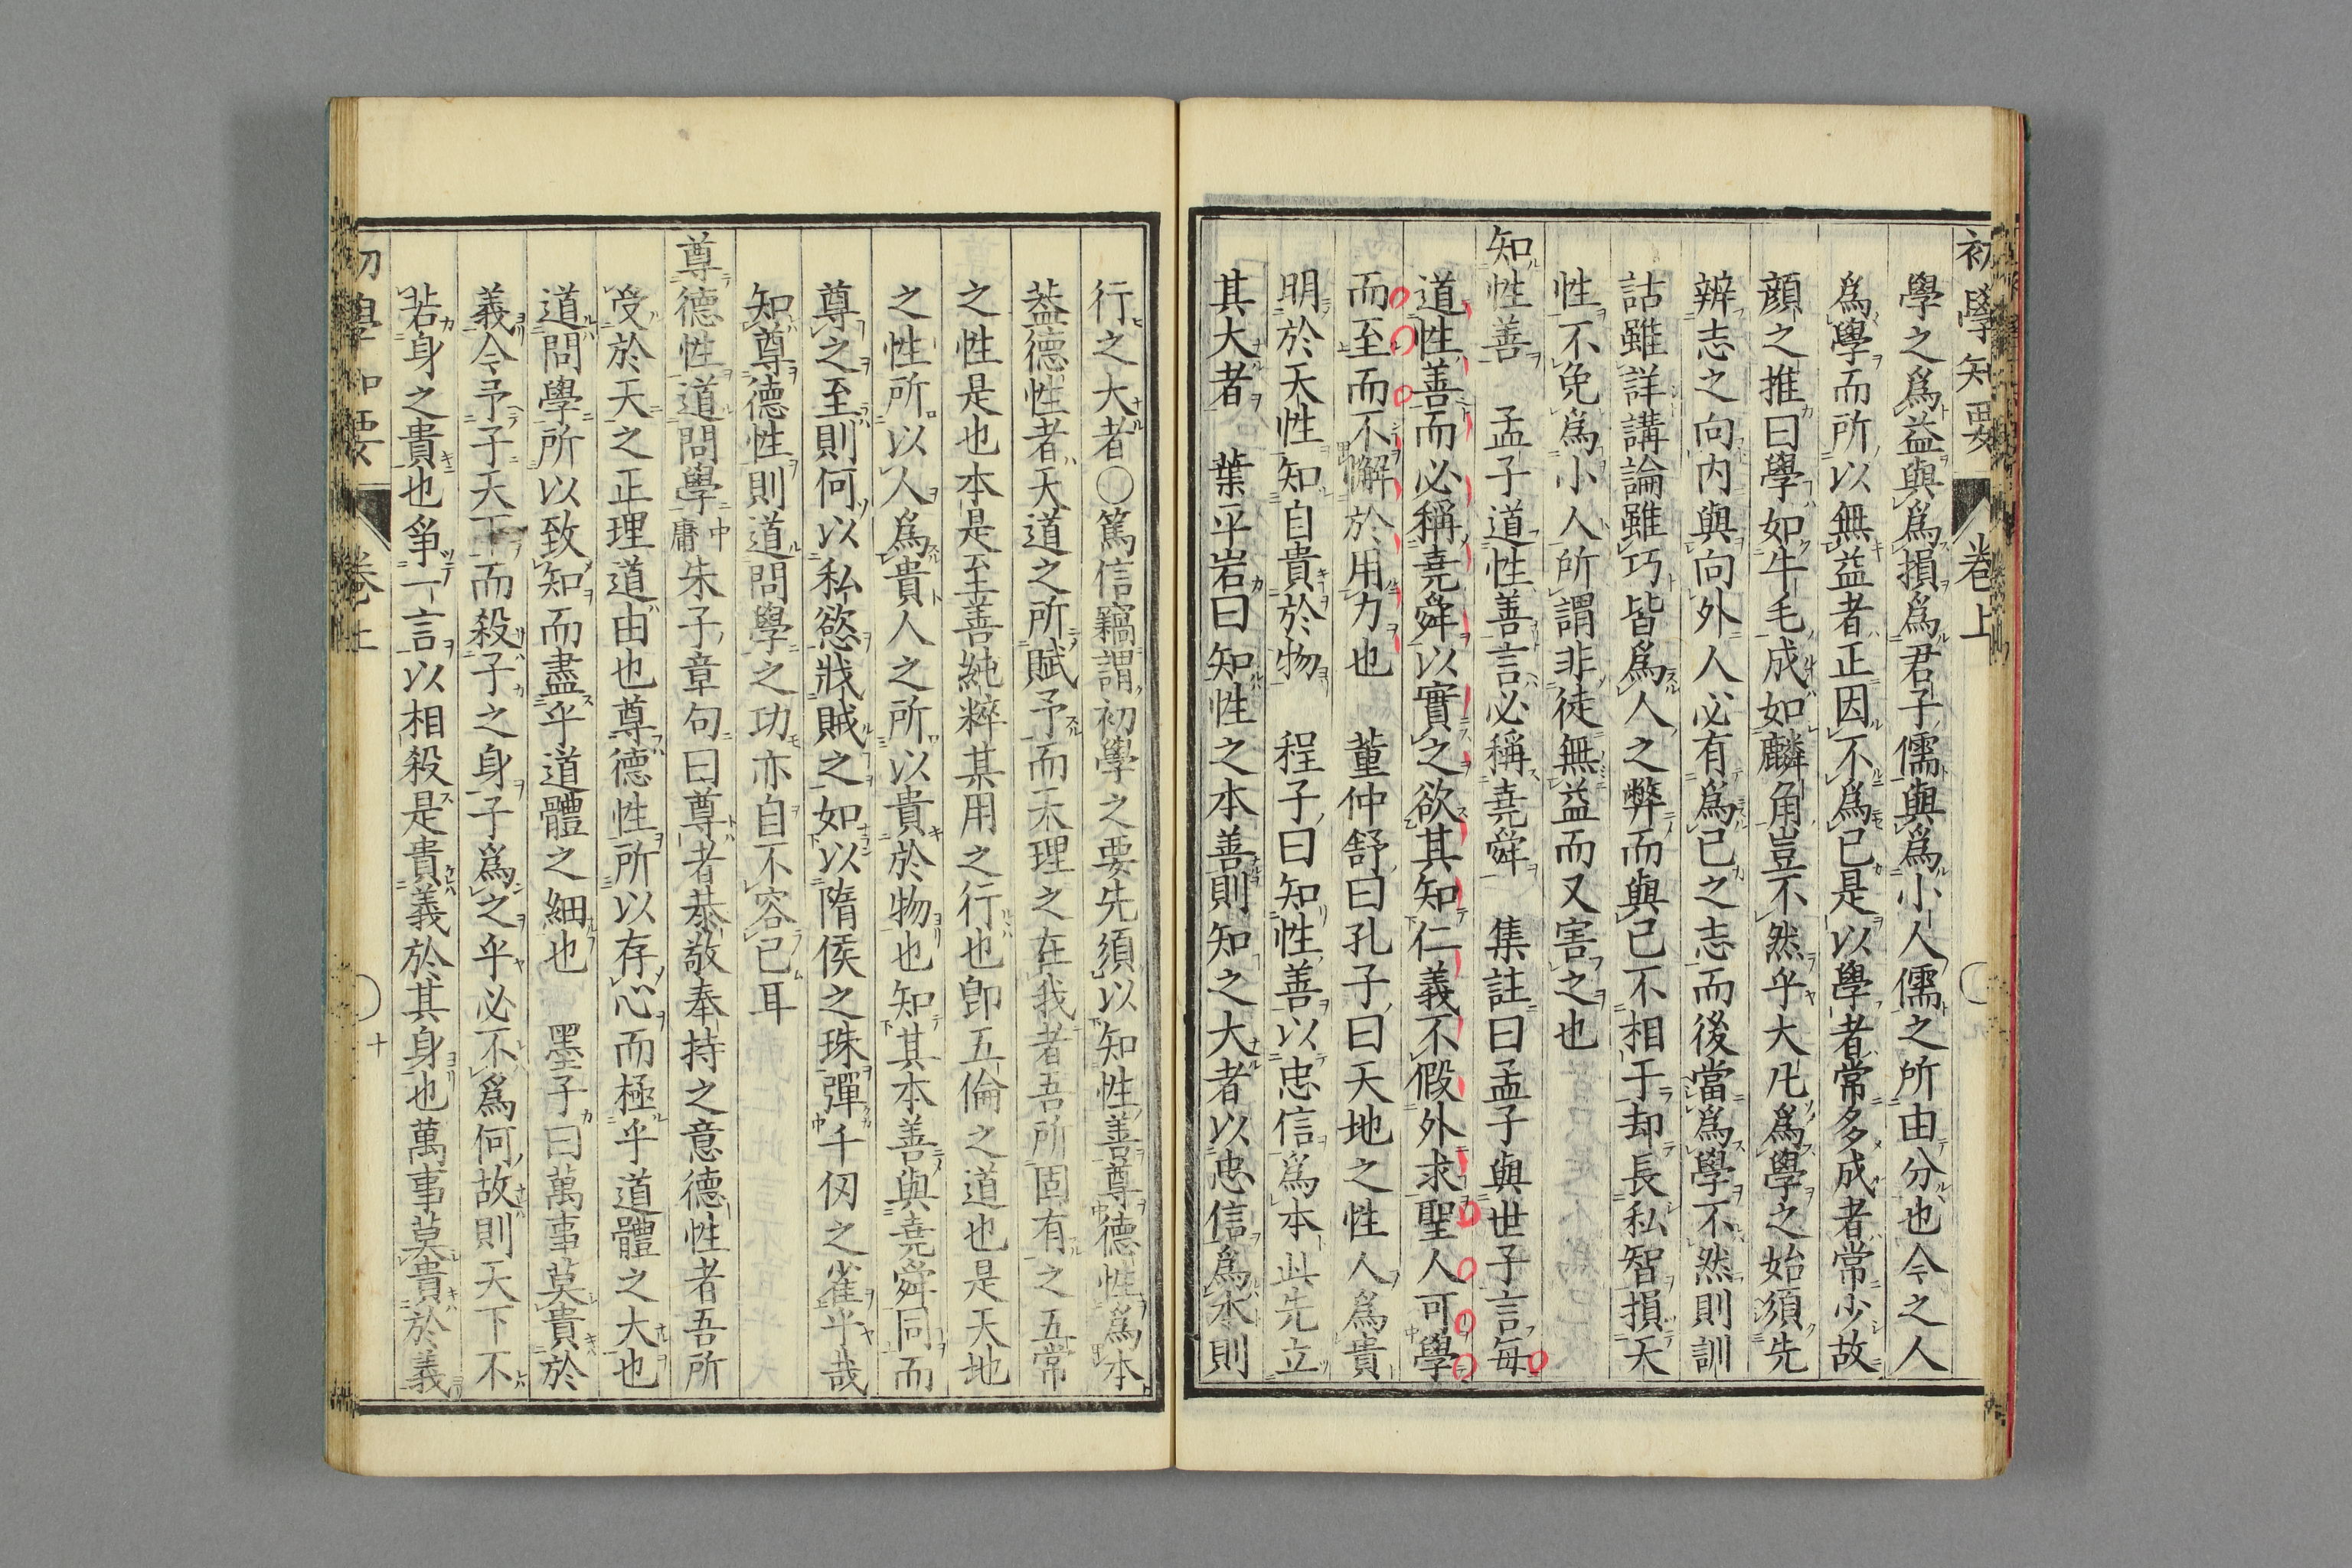 初學知要 卷上
學之爲益與爲損爲君子儒與爲小人儒之所由分也今之人
爲學而所以無益者正因不爲已是以學者常多成者常少故
顔之推曰學如牛毛成如麟角豈不然乎大凡爲學之始須先
辨志之向内與向外人必有爲已之志而後當爲學不然則訓
詁雖詳講論雖巧皆爲人之弊而與已不相于却長私智損天
性不免爲小人所謂非徒無益而又害之也
知性善 孟子道性善言必稱堯舜 集註曰孟子與世子言每
道性善而必稱堯舜以實之欲其知仁義不假外求聖人可學
而至而不懈於用力也 董仲舒曰孔子曰天地之性人爲貴
明於天性知自貴於物 程子曰知性善以忠信爲本此先立
其大者 葉平岩曰知性之本善則知之大者以忠信爲本則
行之大者○篤信竊謂初學之要先須以知性善尊德性爲本
葢德性者天道之所賦予而禾理之在我者吾所固有之五常
之性是也本是至善純粹其用之行也卽五倫之道也是天地
之性所以人爲貴人之所以貴於物也知其本善與堯舜同而
尊之至則何以私慾戕賊之如以隋侯之珠彈千仭之雀乎哉
知尊德性則道問學之功亦自不容已耳
尊德性道問學中庸 朱子章句曰尊者恭敬奉持之意德性者吾所
受於天之正理道由也尊德性所以存心而極乎道體之大也
道問學所以致知而盡乎道體之細也 墨子曰萬事莫貴於
義今予子天下而殺子之身子爲之乎必不爲何故則天下不
若身之貴也爭一言以相殺是貴義於其身也萬事莫貴於義
初學知要 卷上 十